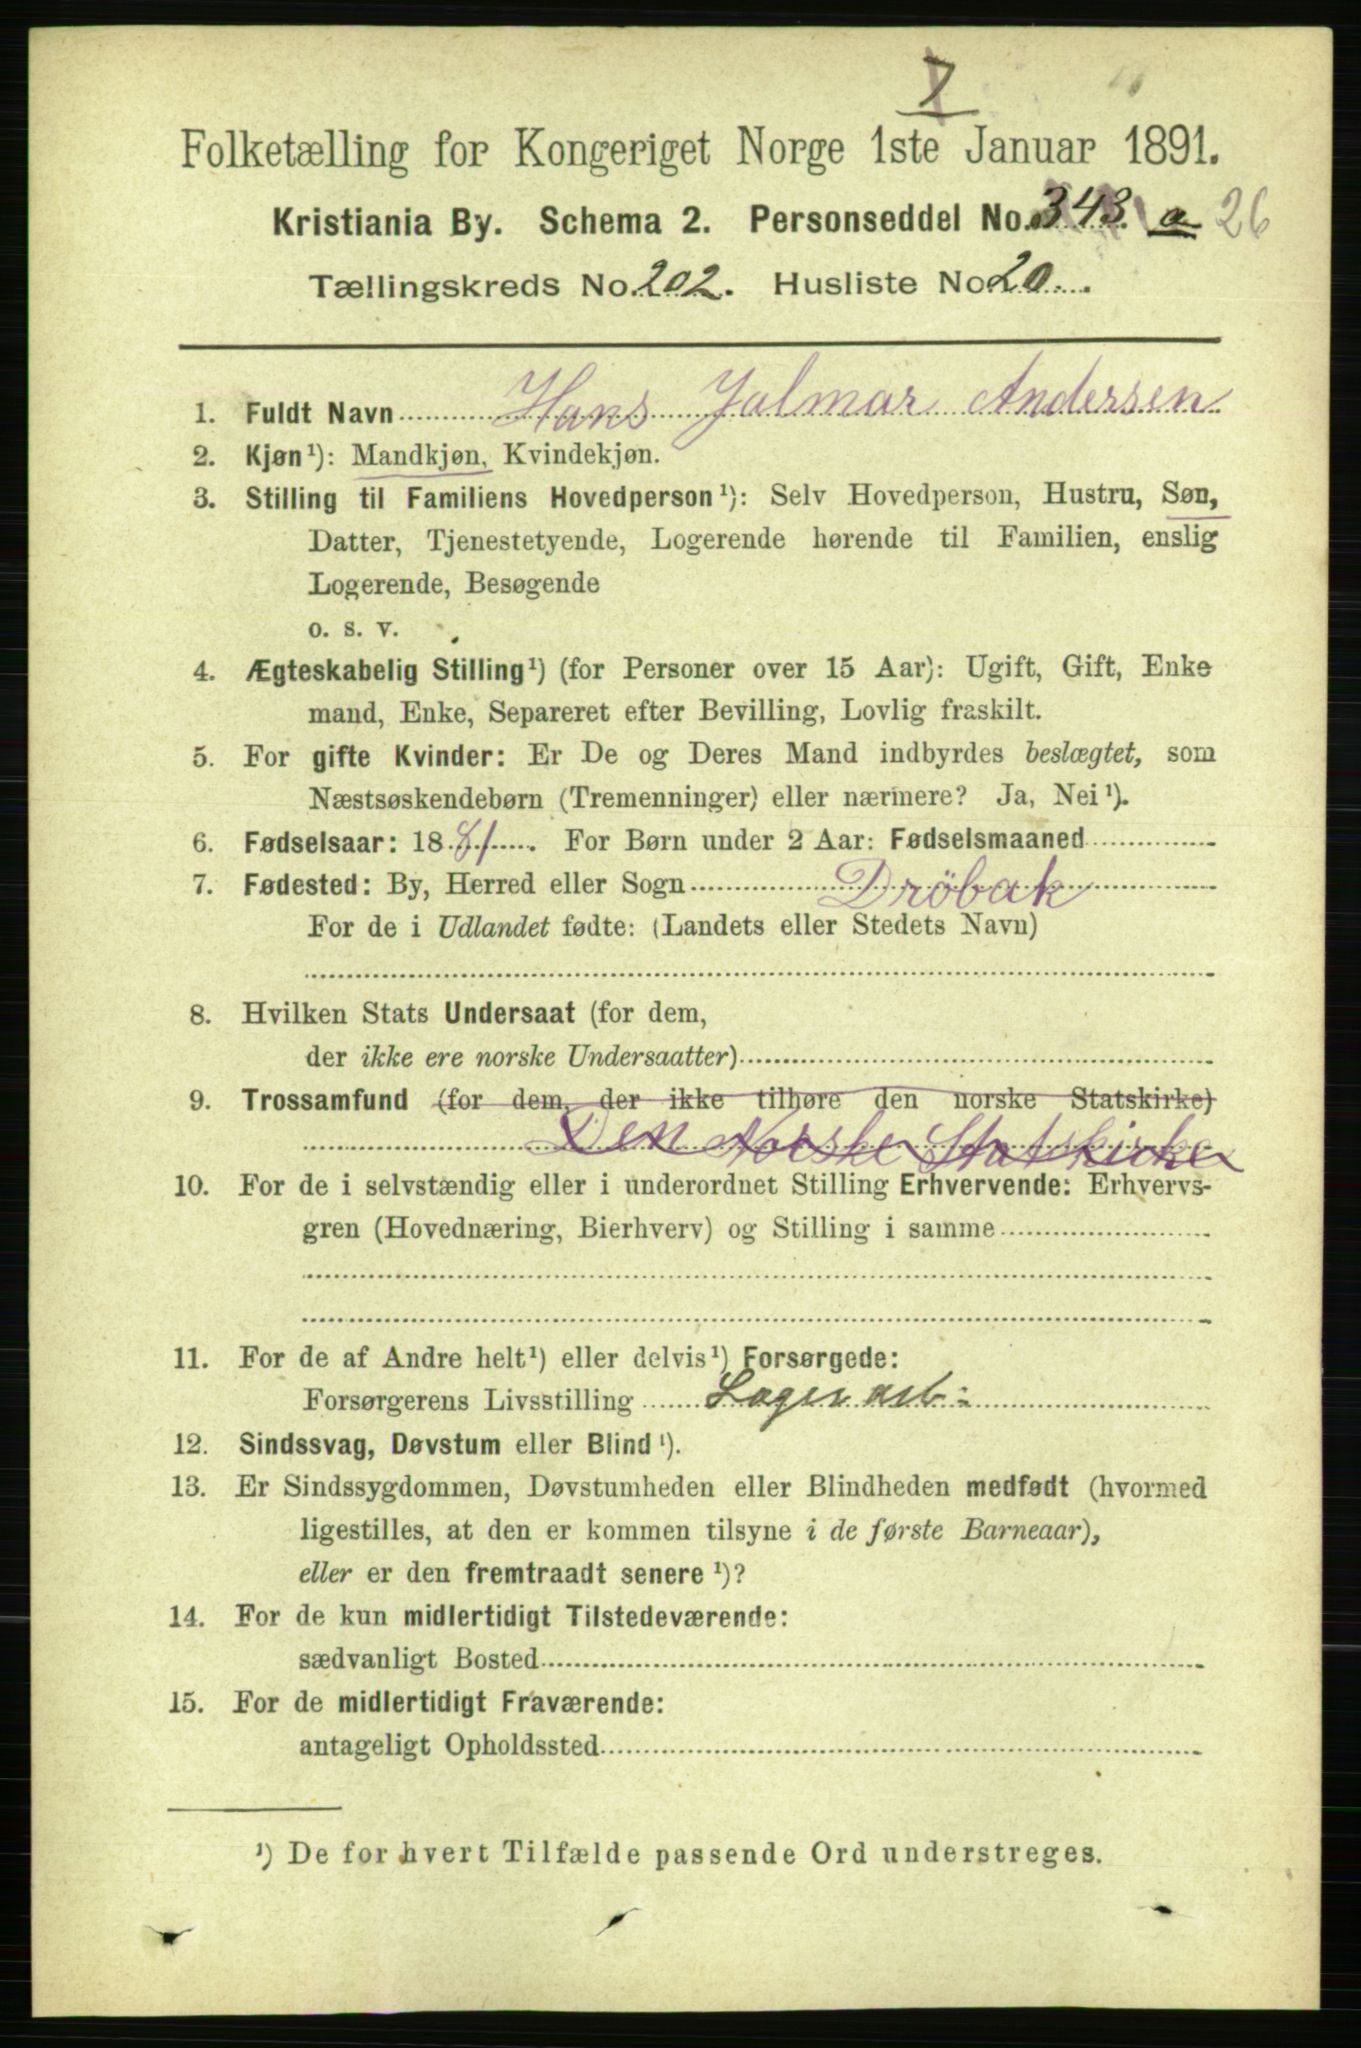 7
Folketælling for Kongeriget Norge 1ste Januar 1891.
Kristiania By. Schema 2. Personseddel No. 343. a 26
Tællingskreds No. 202. Husliste No. 20.
1. Fuldt Navn Hans Jalmar Andersen
2. Kjøn¹): Mandkjøn, Kvindekjøn.
3. Stilling til Familiens Hovedperson¹): Selv Hovedperson, Hustru, Søn,
Datter, Tjenestetyende, Logerende hørende til Familien, enslig
Logerende, Besøgende
o. s. v.
4. Ægteskabelig Stilling¹) (for Personer over 15 Aar): Ugift, Gift, Enke
mand, Enke, Separeret efter Bevilling, Lovlig fraskilt.
5. For gifte Kvinder: Er De og Deres Mand indbyrdes beslægtet, som
Næstsøskendebørn (Tremenninger) eller nærmere? Ja, Nei¹).
6. Fødselsaar: 1881. For Børn under 2 Aar: Fødselsmaaned
7. Fødested: By, Herred eller Sogn Dröbak
For de i Udlandet fødte: (Landets eller Stedets Navn)
8. Hvilken Stats Undersaat (for dem,
der ikke ere norske Undersaatter)
9. Trossamfund (for dem, der ikke tilhøre den norske Statskirke)
Den Norske Statskirke
10. For de i selvstændig eller i underordnet Stilling Erhvervende: Erhvervs-
gren (Hovednæring, Bierhverv) og Stilling i samme
11. For de af Andre helt¹) eller delvis¹) Forsørgede:
Forsørgerens Livsstilling Lager arb:
12. Sindssvag, Døvstum eller Blind¹).
13. Er Sindssygdommen, Døvstumheden eller Blindheden medfødt (hvormed
ligestilles, at den er kommen tilsyne i de første Barneaar),
eller er den fremtraadt senere¹)?
14. For de kun midlertidigt Tilstedeværende:
sædvanligt Bosted
15. For de midlertidigt Fraværende:
antageligt Opholdssted
¹) De for hvert Tilfælde passende Ord understreges.